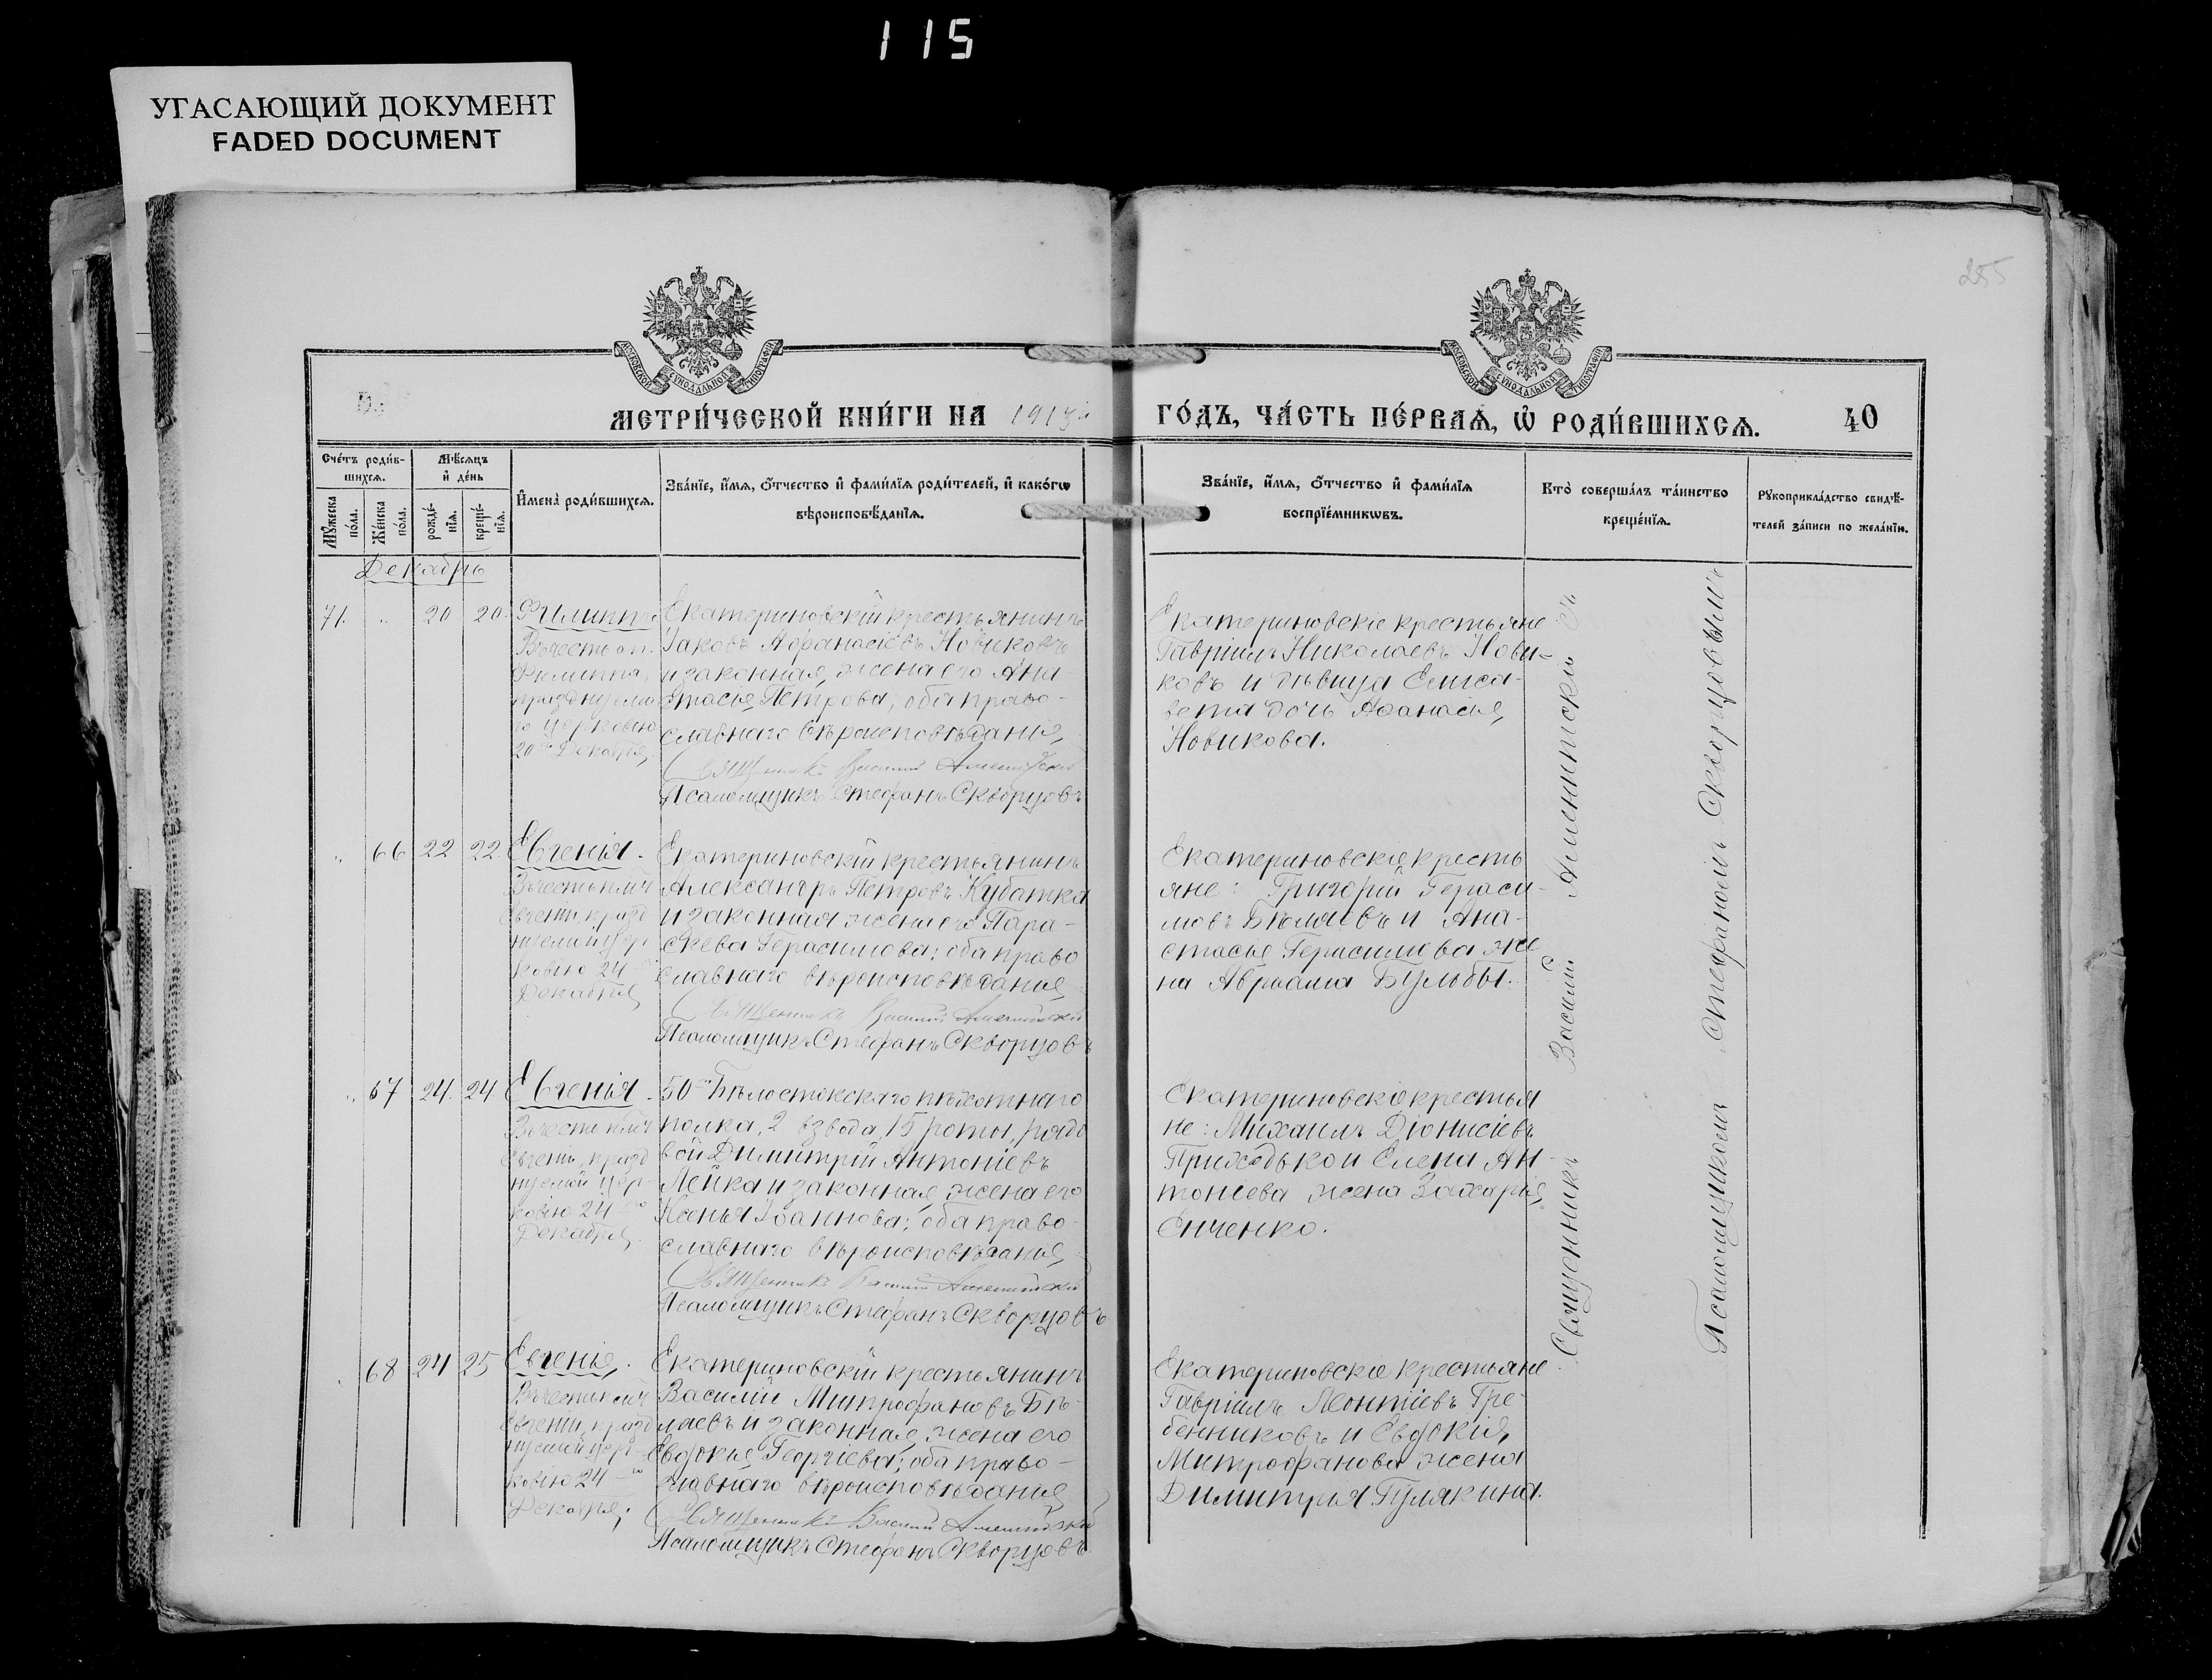 115
УГАСАЮЩИЙ ДОКУМЕНТ
FADED DOCUMENT
255
МОСКОВСКОЙ СѴНОДАЛЬНОЙ ТИПОГРАФІИ
МОСКОВСКОЙ СѴНОДАЛЬНОЙ ТИПОГРАФІИ
МЕТРИ́ЧЕСКОЙ КНИ́ГИ НА 1913й
ГО́ДЪ, ЧА́СТЬ ПЕ́РВАѦ, Ѡ РОДИ́ВШИХСѦ. 40
Сче́тъ роди́в-
шихсѧ.
Мѣ́сѧцъ
и҆ де́нь
Мꙋ́жеска по́ла.
Же́нска по́ла.
рожде́-
нїѧ.
креще́-
нїѧ.
И҆мена̀ роди́вшихсѧ.
Зва́нїе, и҆́мѧ, ѻ҆́тчество и҆ фами́лїѧ роди́телей, и҆ како́гѡ
вѣроисповѣ́данїѧ.
Зва́нїе, и҆́мѧ, ѻ҆́тчество и҆ фами́лїѧ
воспрїе́мникѡвъ.
Кто̀ соверша́лъ та́инство
креще́нїѧ.
Рꙋкоприкла́дство свидѣ́-
телей за́писи по жела́нїю.
Декабрь
71. " 20 20.
Филиппъ
Въ честь ап.
Филиппа,
празднуема
го церковью
20го Декабря,
Екатериновскій крестьянинъ
Іаковъ Афанасіевъ Новиковъ
и законная жена его Ана-
стасья Петрова; оба право-
славнаго вѣроисповѣданія,
Священникъ Василій
Псаломщикъ Стефанъ Скворцовъ
Екатериновскіе крестьяне
Гавріилъ Николаевъ Нови-
ковъ и дѣвица Елиса-
вета дочь Афанасія
Новикова.
" 66 22 22
Евгенія.
Въ честь пмч
Евгеніи, празд
нуемой цер
ковію 24го
Декабря
Екатериновскій крестьянинъ
Александръ Петровъ Кубатка
и законная жена его Пара-
скева Герасимова; оба право
славнаго вѣроисповѣданія
Священникъ Василій
Псаломщикъ Стефанъ Скворцовъ
Екатериновскіе кресть
яне: Григорій Гераси-
мовъ Бѣляевъ и Ана-
стасья Герасимова же
на Авраама Бульбы.
" 67 24. 24
Евгенія.
Въ честь пмч
Евгеніи, празд
нуемой цер-
ковію 24го
Декабря
50го Бѣлостокскаго пѣхотнаго
полка, 2 взвода, 15 роты, рядо
вой Димитрій Антоніевъ
Лейка и законная жена его
Ксенія Іоаннова; оба право-
славнаго вѣроисповѣданія
Священникъ Василій
Псаломщикъ Стефанъ Скворцовъ
Екатериновскіе крестья
не: Михаилъ Діонисіевъ
Приходько и Елена Ан-
тоніева жена Захарія
Енченко.
68 24 25
Евгенія.
Въ честь пмч
Евгеніи, празд
нуемой цер-
ковію 24го
Декабря.
Екатериновскій крестьянинъ
Василій Митрофановъ Бѣ-
ляевъ и законная жена его
Евдокія Георгіева; оба право-
славнаго вѣроисповѣданія
Священникъ Василій
Псаломщикъ Стефанъ Скворцовъ
Екатериновскіе крестьяне
Гавріилъ Леонтіевъ Гре-
бенниковъ и Евдокія
Митрофанова жена
Димитрія Гулякина.
Священникъ Василій съ
Псаломщикомъ Стефаномъ Скворцовымъ